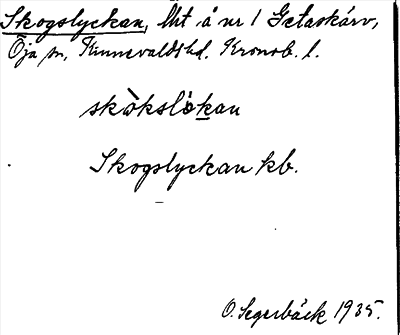 Skogslyckan, lht å nr 1 Getaskärv,
Öja sn, Kinnevaldshd. Kronob. l.
skòkslỳkan
Skogslyckan kb.
O. Segerbäck 1935.